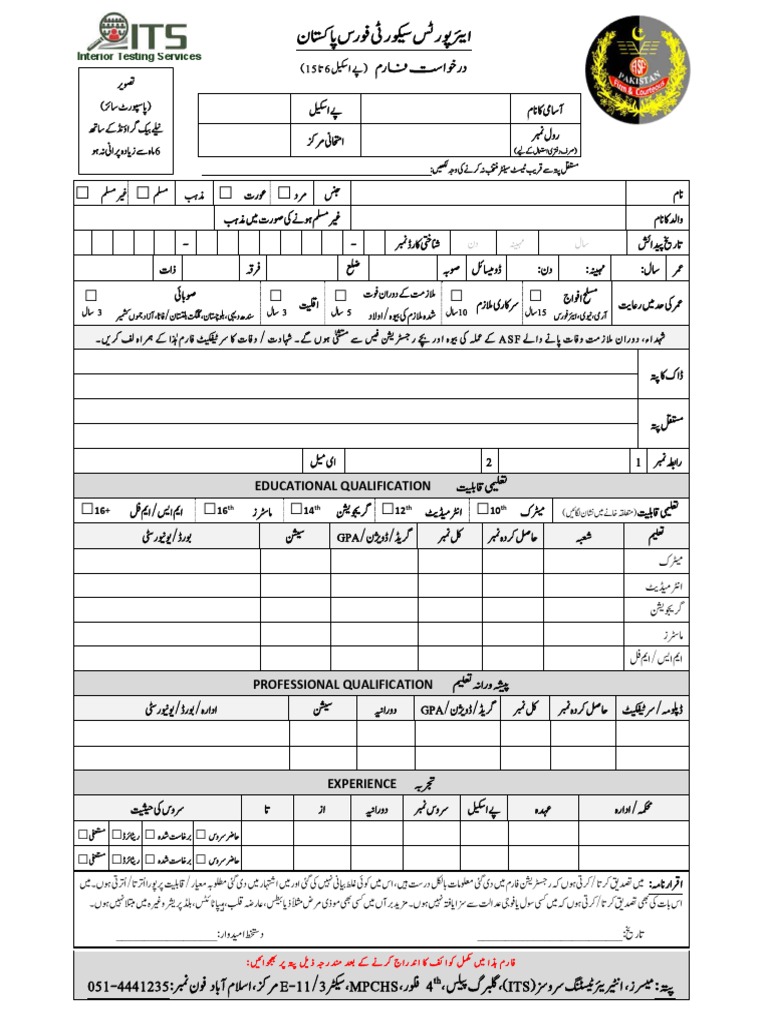 ITS
Interior Testing Services
ایئرپورٹس سیکورٹی فورس پاکستان
درخواست فارم (پے اسکیل 6 تا 15)
ASF
PAKISTAN
Firm & Courteous
تصویر
(پاسپورٹ سائز)
نیلے بیک گراؤنڈ کے ساتھ
6 ماہ سے زیادہ پرانی نہ ہو
آسامی کا نام
پے اسکیل
رول نمبر
(صرف دفتری استعمال کے لیے)
امتحانی مرکز
مستقل پتہ سے قریب ٹیسٹ سینٹر منتخب نہ کرنے کی وجہ لکھیں:
نام
جنس
مرد
عورت
مذہب
مسلم
غیر مسلم
والد کا نام
غیر مسلم ہونے کی صورت میں مذہب
تاریخ پیدائش
سال
مہینہ
دن
شناختی کارڈ نمبر
-
-
عمر
سال:
مہینہ:
دن:
ڈومیسائل
صوبہ
ضلع
فرقہ
ذات
عمر کی حد میں رعایت
مسلح افواج
آرمی، نیوی، ایئر فورس
15 سال
سرکاری ملازم
10 سال
ملازمت کے دوران فوت
شدہ ملازم کی بیوہ / اولاد
5 سال
اقلیت
3 سال
صوبائی
سندھ دیہی، بلوچستان، گلگت بلتستان / فاٹا، آزاد جموں کشمیر
3 سال
شہداء، دوران ملازمت وفات پانے والے ASF کے عملہ کی بیوہ اور بچے رجسٹریشن فیس سے مستثنیٰ ہوں گے۔ شہادت / وفات کا سرٹیفکیٹ فارم ہٰذا کے ہمراہ لف کریں۔
ڈاک کا پتہ
مستقل پتہ
رابطہ نمبر
1
2
ای میل
تعلیمی قابلیت EDUCATIONAL QUALIFICATION
تعلیمی قابلیت (متعلقہ خانے میں نشان لگائیں)
میٹرک 10th
انٹرمیڈیٹ 12th
گریجویشن 14th
ماسٹرز 16th
ایم ایس / ایم فل 16+
تعلیم
شعبہ
حاصل کردہ نمبر
کل نمبر
گریڈ / ڈویژن / GPA
سیشن
بورڈ / یونیورسٹی
میٹرک
انٹرمیڈیٹ
گریجویشن
ماسٹرز
ایم ایس / ایم فل
پیشہ ورانہ تعلیم PROFESSIONAL QUALIFICATION
ڈپلومہ / سرٹیفکیٹ
حاصل کردہ نمبر
کل نمبر
گریڈ / ڈویژن / GPA
دورانیہ
سیشن
ادارہ / بورڈ / یونیورسٹی
تجربہ EXPERIENCE
محکمہ / ادارہ
عہدہ
پے اسکیل
سروس نمبر
دورانیہ
از
تا
سروس کی حیثیت
حاضر سروس
برخاست شدہ
ریٹائرڈ
مستعفی
حاضر سروس
برخاست شدہ
ریٹائرڈ
مستعفی
اقرار نامہ: میں تصدیق کرتا / کرتی ہوں کہ رجسٹریشن فارم میں دی گئی معلومات بالکل درست ہیں، اس میں کوئی غلط بیانی نہیں کی گئی اور میں اشتہار میں دی گئی مطلوبہ معیار / قابلیت پر پورا اترتا / اُترتی ہوں۔ میں
اس بات کی بھی تصدیق کرتا / کرتی ہوں کہ میں کسی سول یا فوجی عدالت سے سزا یافتہ نہیں ہوں۔ مزید برآں میں کسی بھی موذی مرض مثلاً ذیابیطس، عارضہ قلب، ہیپاٹائٹس، بلڈ پریشر وغیرہ میں مبتلا نہیں ہوں۔
تاریخ:
دستخط امیدوار:
فارم ہذا میں مکمل کوائف کا اندراج کرنے کے بعد مندرجہ ذیل پتہ پر بھجوائیں:
پتہ: میسرز، انٹیریئر ٹیسٹنگ سروسز (ITS)، گلبرگ پیلس، 4th فلور، MPCHS، سیکٹر E-11/3 مرکز، اسلام آباد فون نمبر: 051-4441235